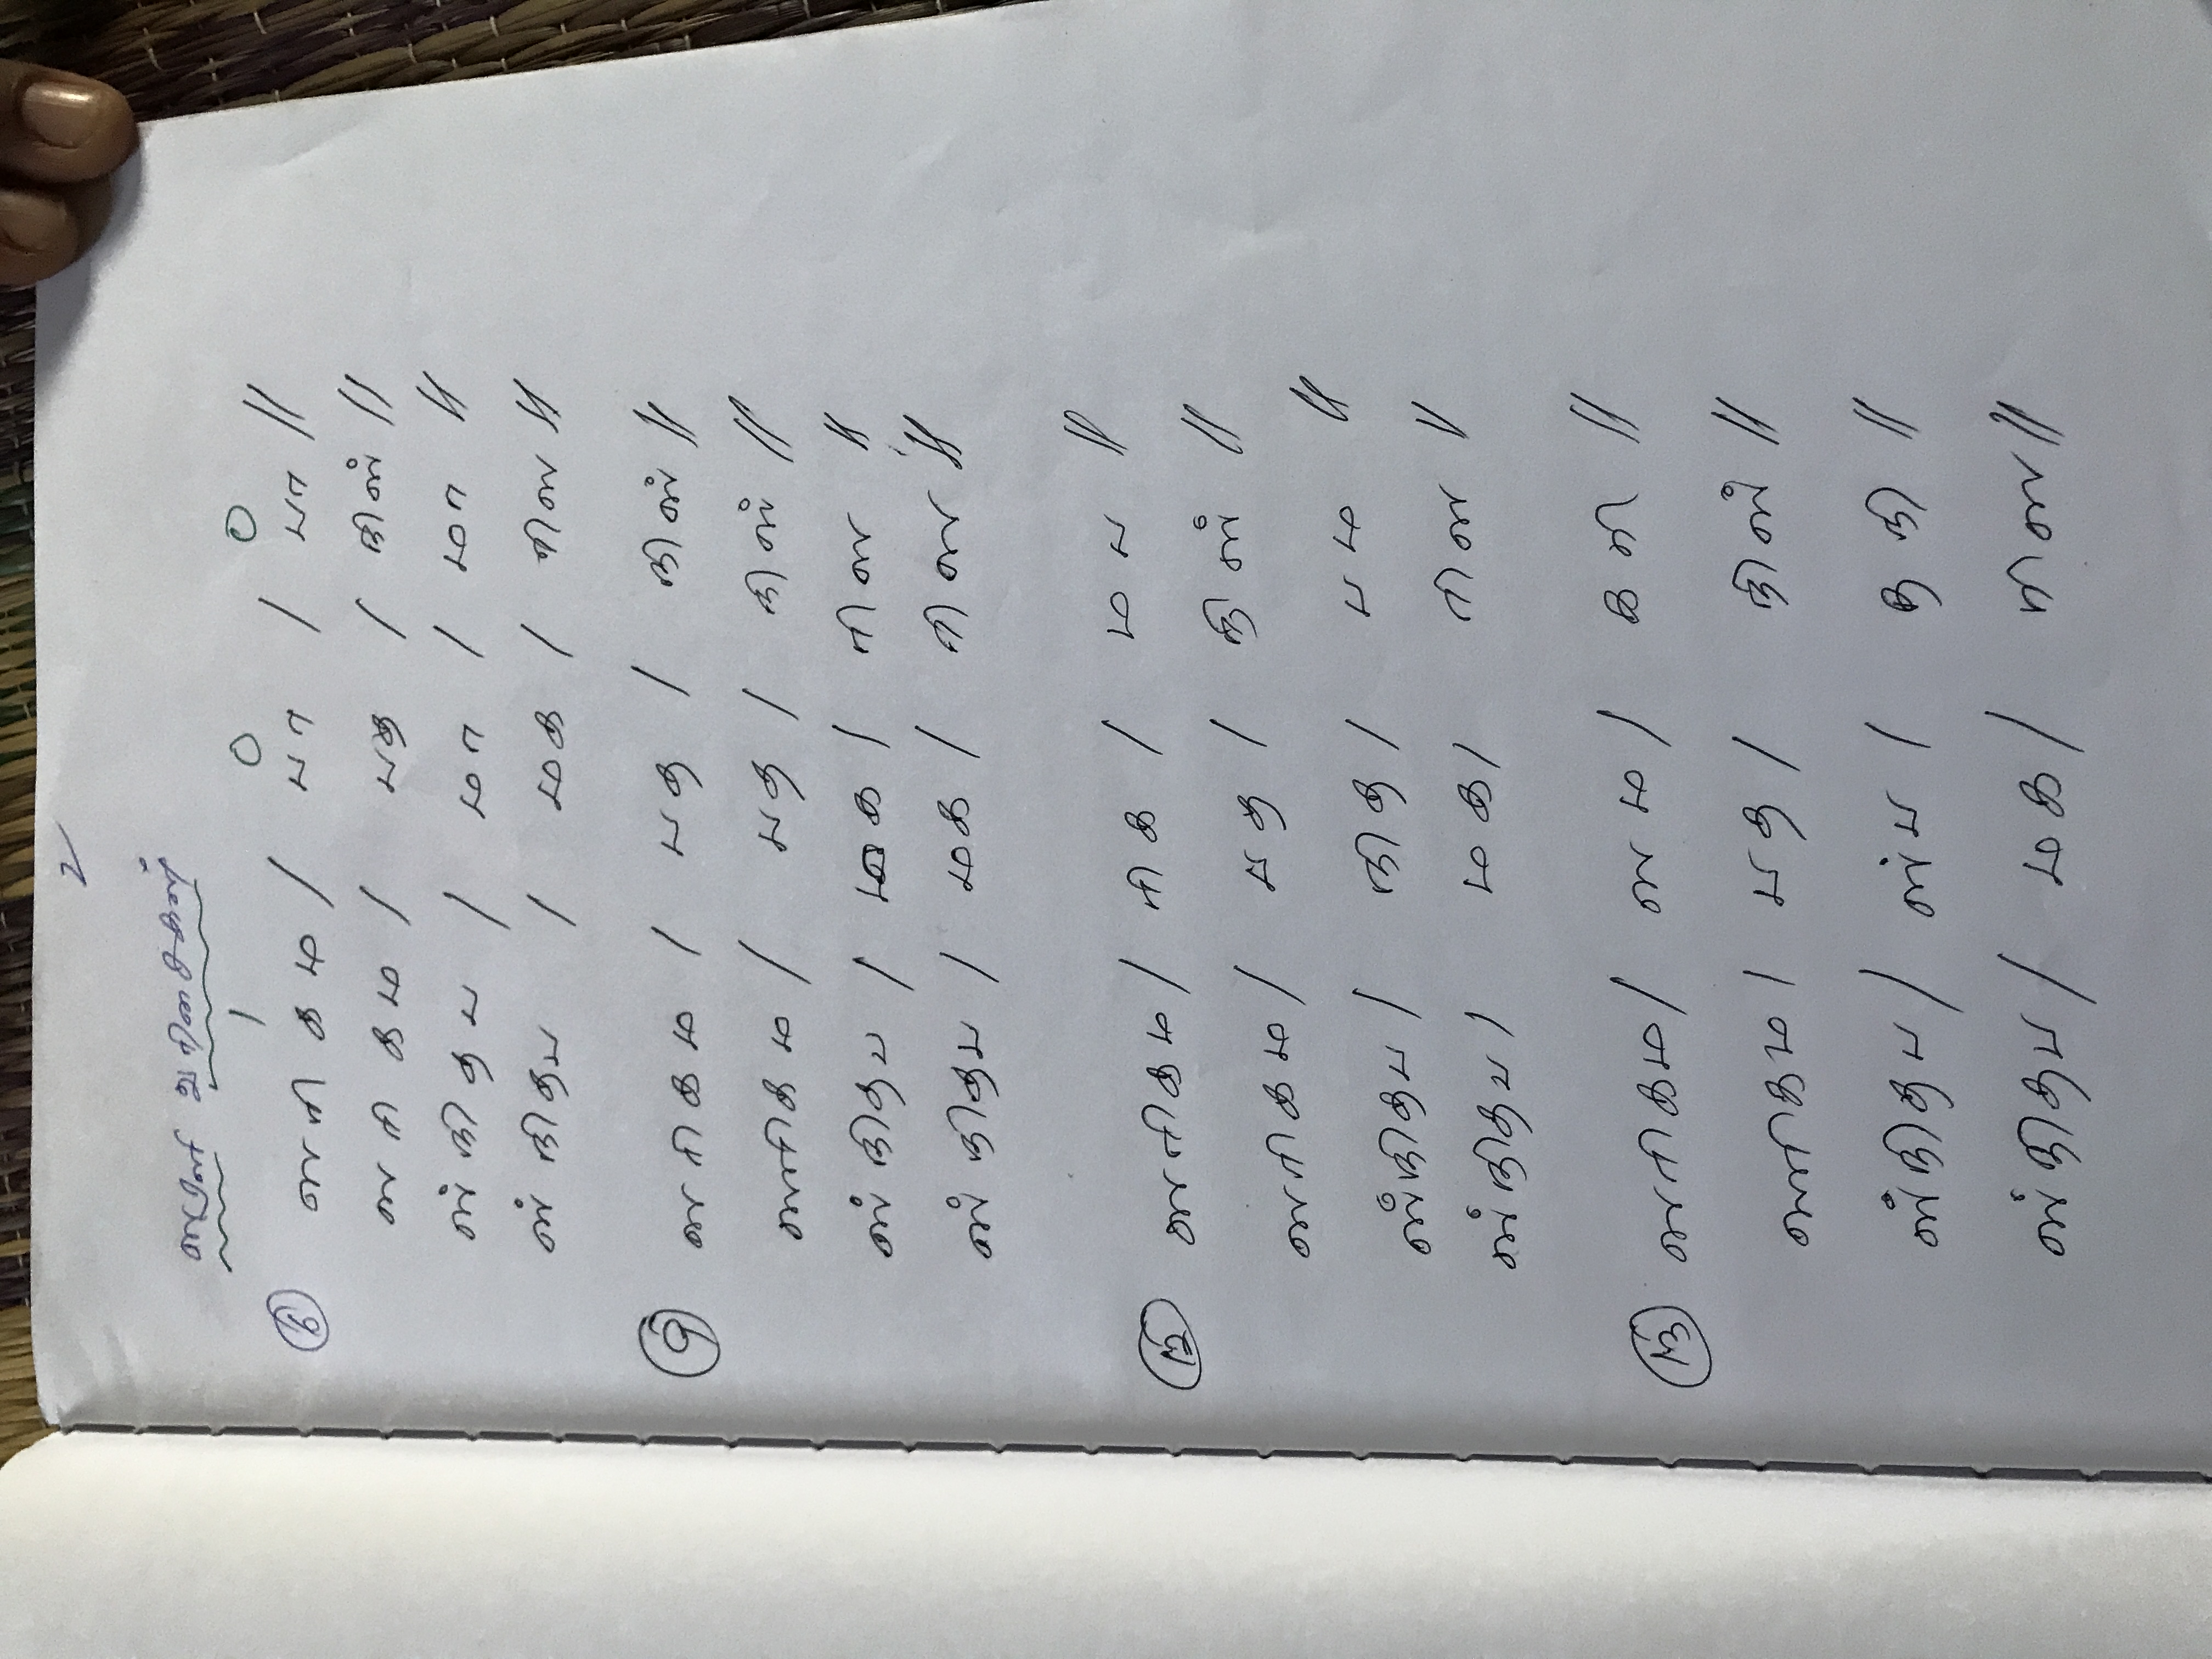 2
ஸரளி வரிசைகள்
| O O
6 ஸ ரி க ம / பா / பா //
ஸ ரி க ம / பத / நிஸ் //
ஸ் நி த ப / மா / மா //
ஸ் நிதப / மக / ரிஸ //
9 ஸ ரிகம / பத / நிஸ் //
ஸரிகம / பத / நிஸ் //
ஸ் நிதப / மக / ரிஸ //
ஸ் நிதப / மக / ரிஸ //
12 ஸரிகம / ரிக / மப //
ஸரிகம / பத / நிஸ் //
ஸ்நிதப / நித / பம //
ஸ்நிதப / மக / ரிஸ //
13 ஸரிகம / ஸம / கரி //
ஸரிகம / பத / நிஸ் //
ஸ்நிதப / ஸ்ப / தநி //
ஸ்நிதப / மக / ரிஸ //